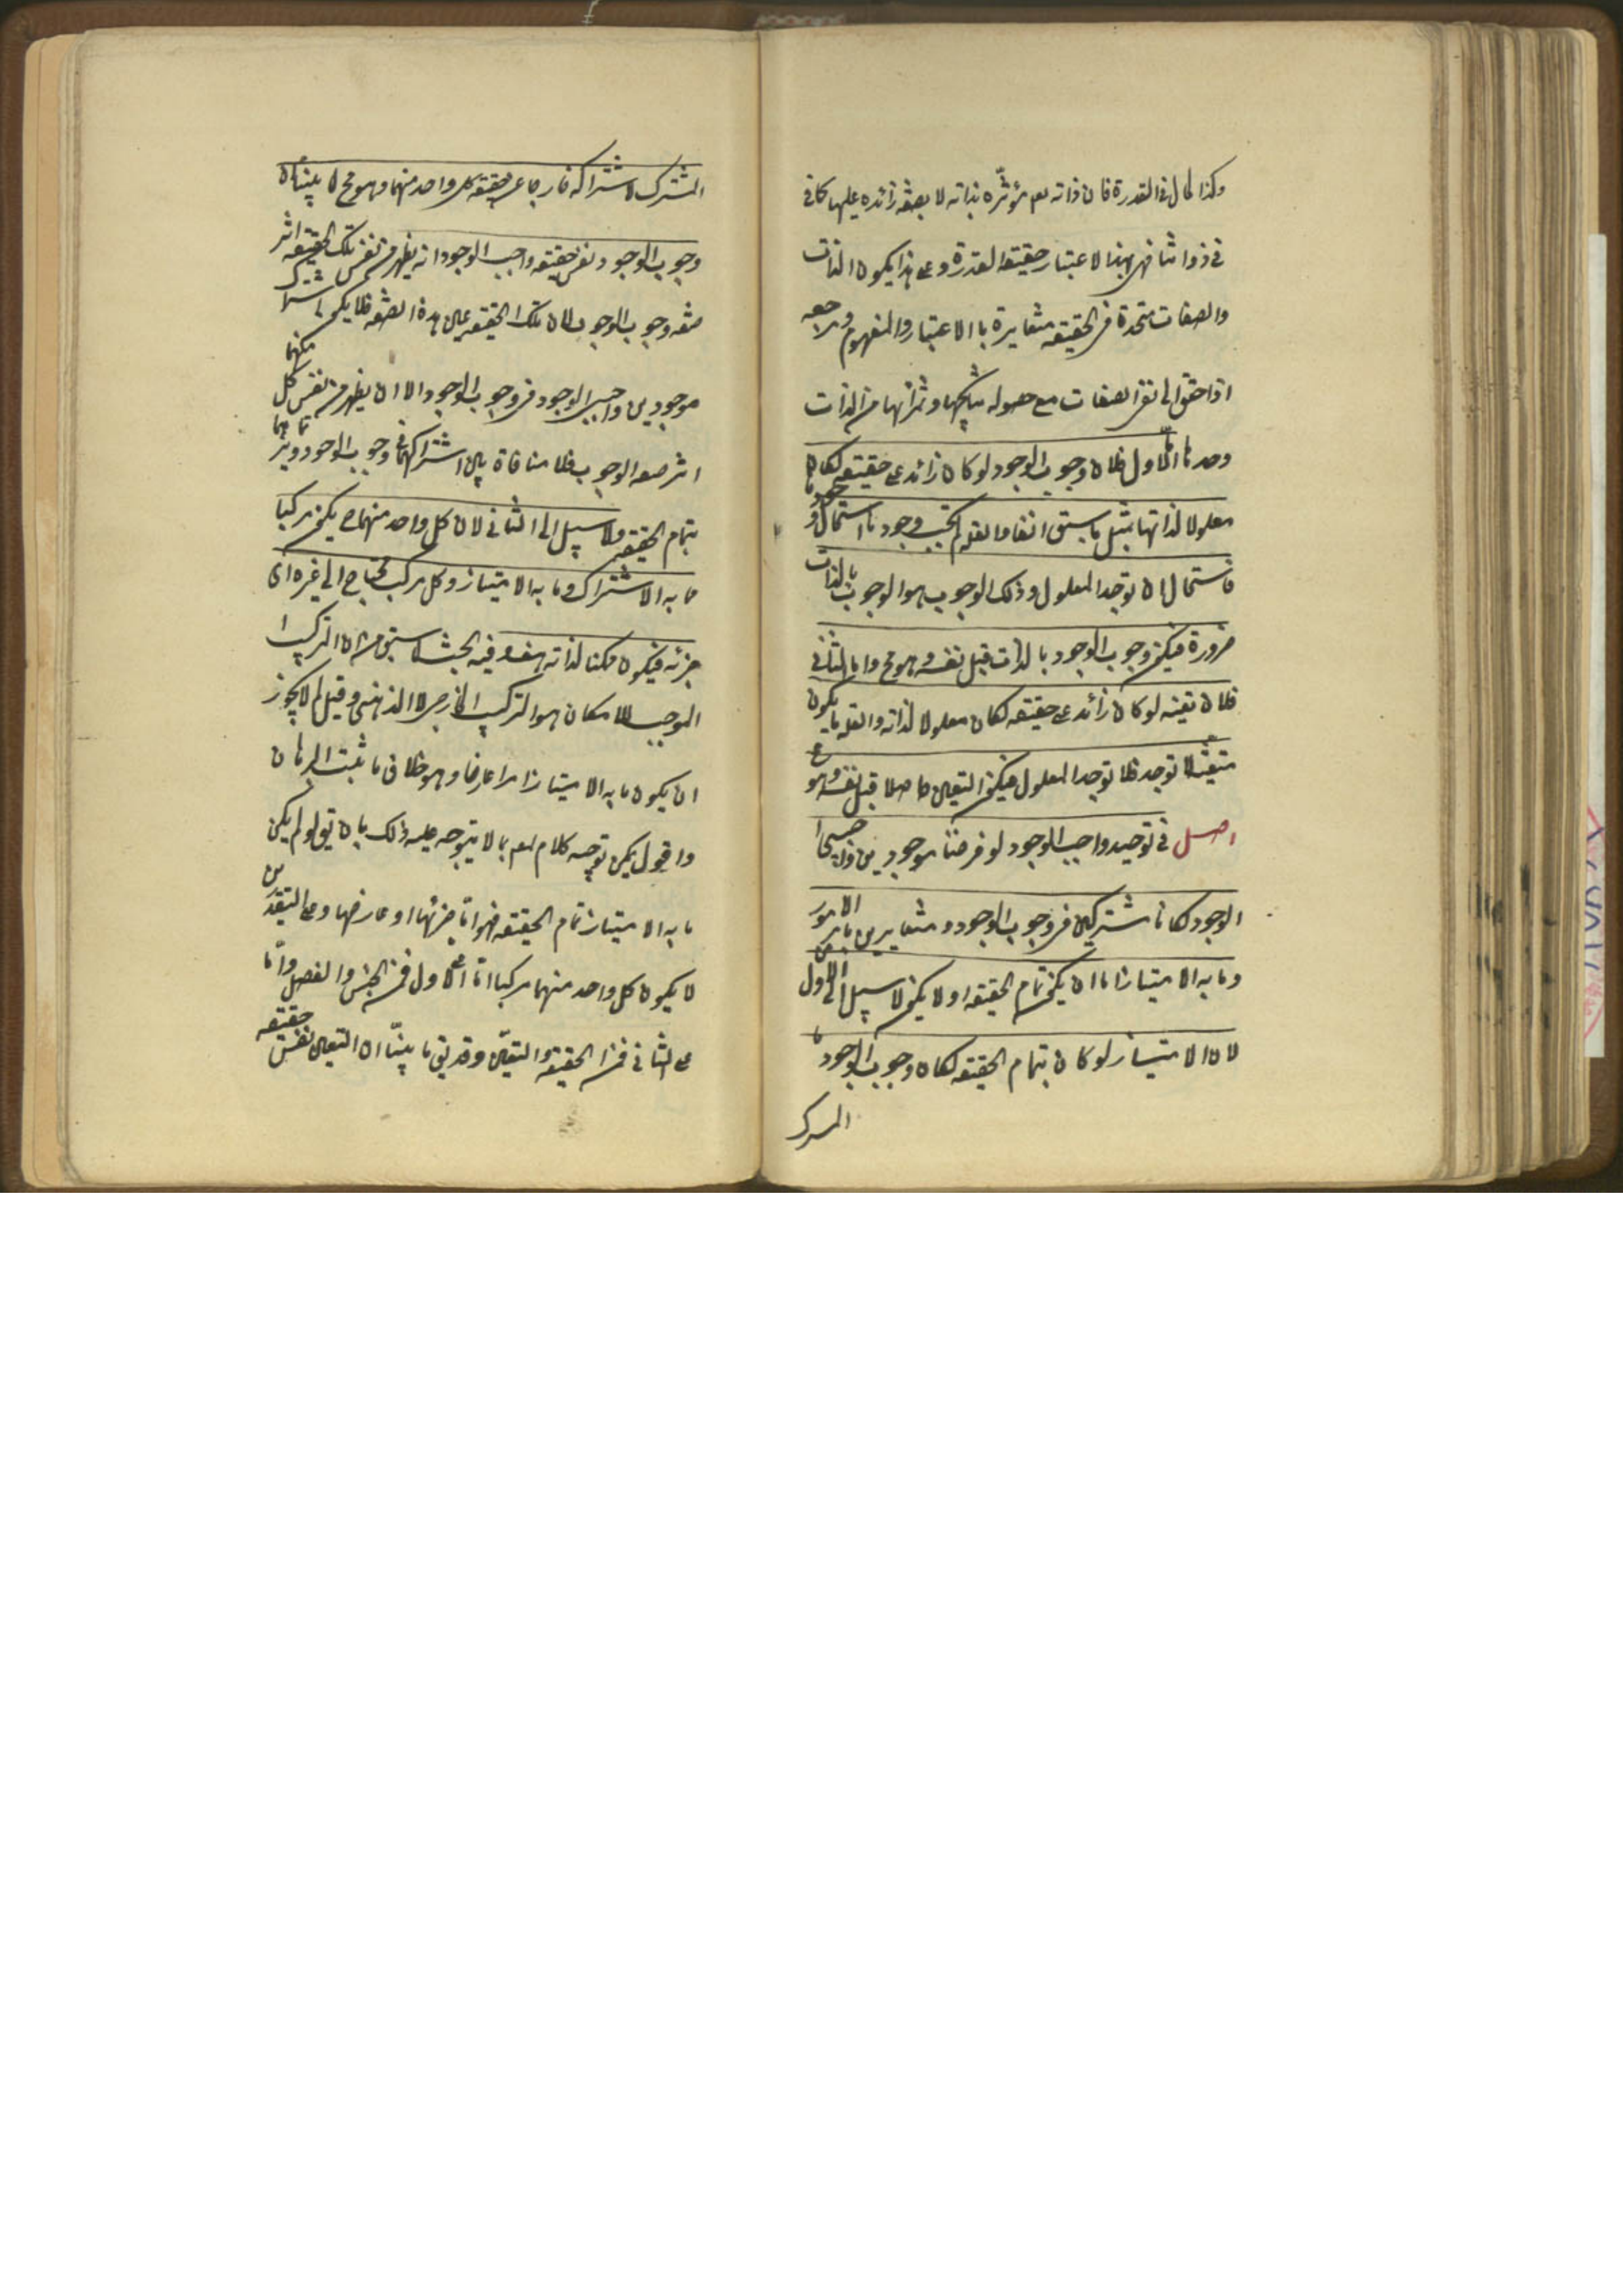 وكذا الحال فى القدرة فان ذاته تعم مؤثره بذاته لا بصفه زائده عليها كما فى
فى ذواتنا فهى بهذا الاعتبار حقيقة القدرة وعلى هذا يكون الذات
والصفات متحدة فى الحقيقه متغايرة باالاعتبار والمفهوم ومرجعه
اذا حقق الى نفى الصفات مع حصول نتايجها وثمراتها من الذات
وحدها اما الاول فلان وجوب الوجود لو كان زائد على حقيقته لكان
معلولا لذاتها بمثل ما سبق انفا والعله ما لم يجب وجودها استحال وجودها
فاستحال ان توجد المعلول وذلك الوجوب هو الوجوب بالذات
ضرورة فيكون وجوب الوجود بالذات قبل نفسه وهو مح واما الثانى
فلان تعينه لو كان زائد على حقيقته لكان معلولا لذاته والعله ما لم يكون
متعينه لا توجد فلا توجد المعلول فيكون التعين حاصلا قبل نفسه وهو مح
اصل فى توحيد واجب الوجود لو فرضنا موجودين واجبى
الوجود لكانا مشتركين فى وجوب الوجود ومتغايرين بامر من الامور
وما به الامتياز اما ان يكون تمام الحقيقه او لا يكون لا سبيل الى الاول
لان الامتياز لو كان بتمام الحقيقه لكان وجوب الوجود
المشترك
المشترك لاشتراكه خارجا عن حقيقه كل واحد منهما وهو مح لما بينا ان
وجوب الوجود نفس حقيقه واجب الوجود انه يظهر من نفس تلك الحقيقه اثر
صفه وجوب الوجوب لا ان تلك الحقيقه عين هذه الصفه فلا يكون اشتراك
موجودين واجبى الوجود فى وجوب الوجود الا ان يظهر من نفس كل منهما
اثر صفه الوجوب فلا منافاة بين اشتراكهما فى وجوب الوجود وتمايزهما
بتمام الحقيقه ولا سبيل الى الثانى لان كل واحد منهما ح يكون مركبا
مما به الاشتراك وما به الامتياز وكل مركب محتاج الى غيره اى
جزئه فيكون ممكنا لذاته هف وفيه بحث لما سبق من ان التركيب
الموجب للامكان هو التركيب الخارجى لا الذهنى وقيل لم لا يجوز
ان يكون ما به الامتياز امرا عارضا وهو خلاف ما ثبت البرهان
واقول يمكن توجيه كلام المصم بما لا يتوجه عليه ذلك بان يق لو لم يكن
ما به الامتياز تمام الحقيقه فهو اما جزئها او عارضها وعلى التقديرين
لا يكون كل واحد منهما مركبا اما على الاول فمن الجنس والفصل واما
على الثانى فمن الحقيقه والتعين وقد بقى ما بينا ان التعين نفس حقيقه